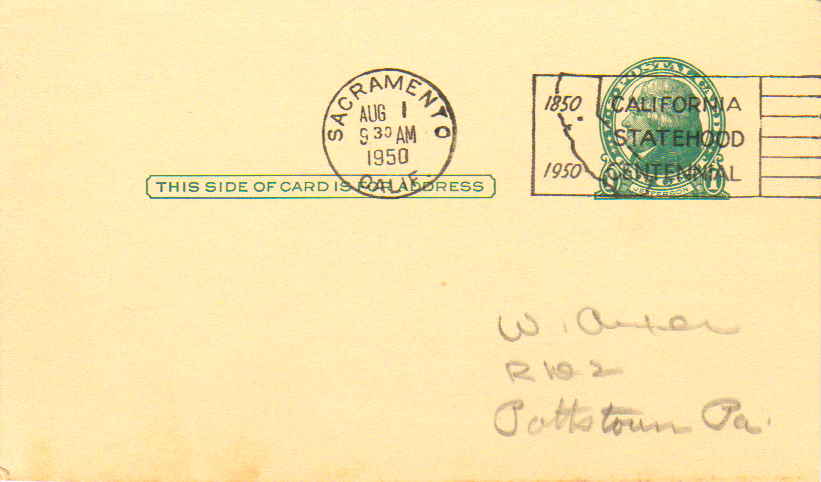 SACRAMENTO
AUG 1
9 30 AM
1950
CALIF.
1850 CALIFORNIA
STATEHOOD
1950 CENTENNIAL
JEFFERSON 1
THIS SIDE OF CARD IS FOR ADDRESS
W.
R
Pottstown Pa.